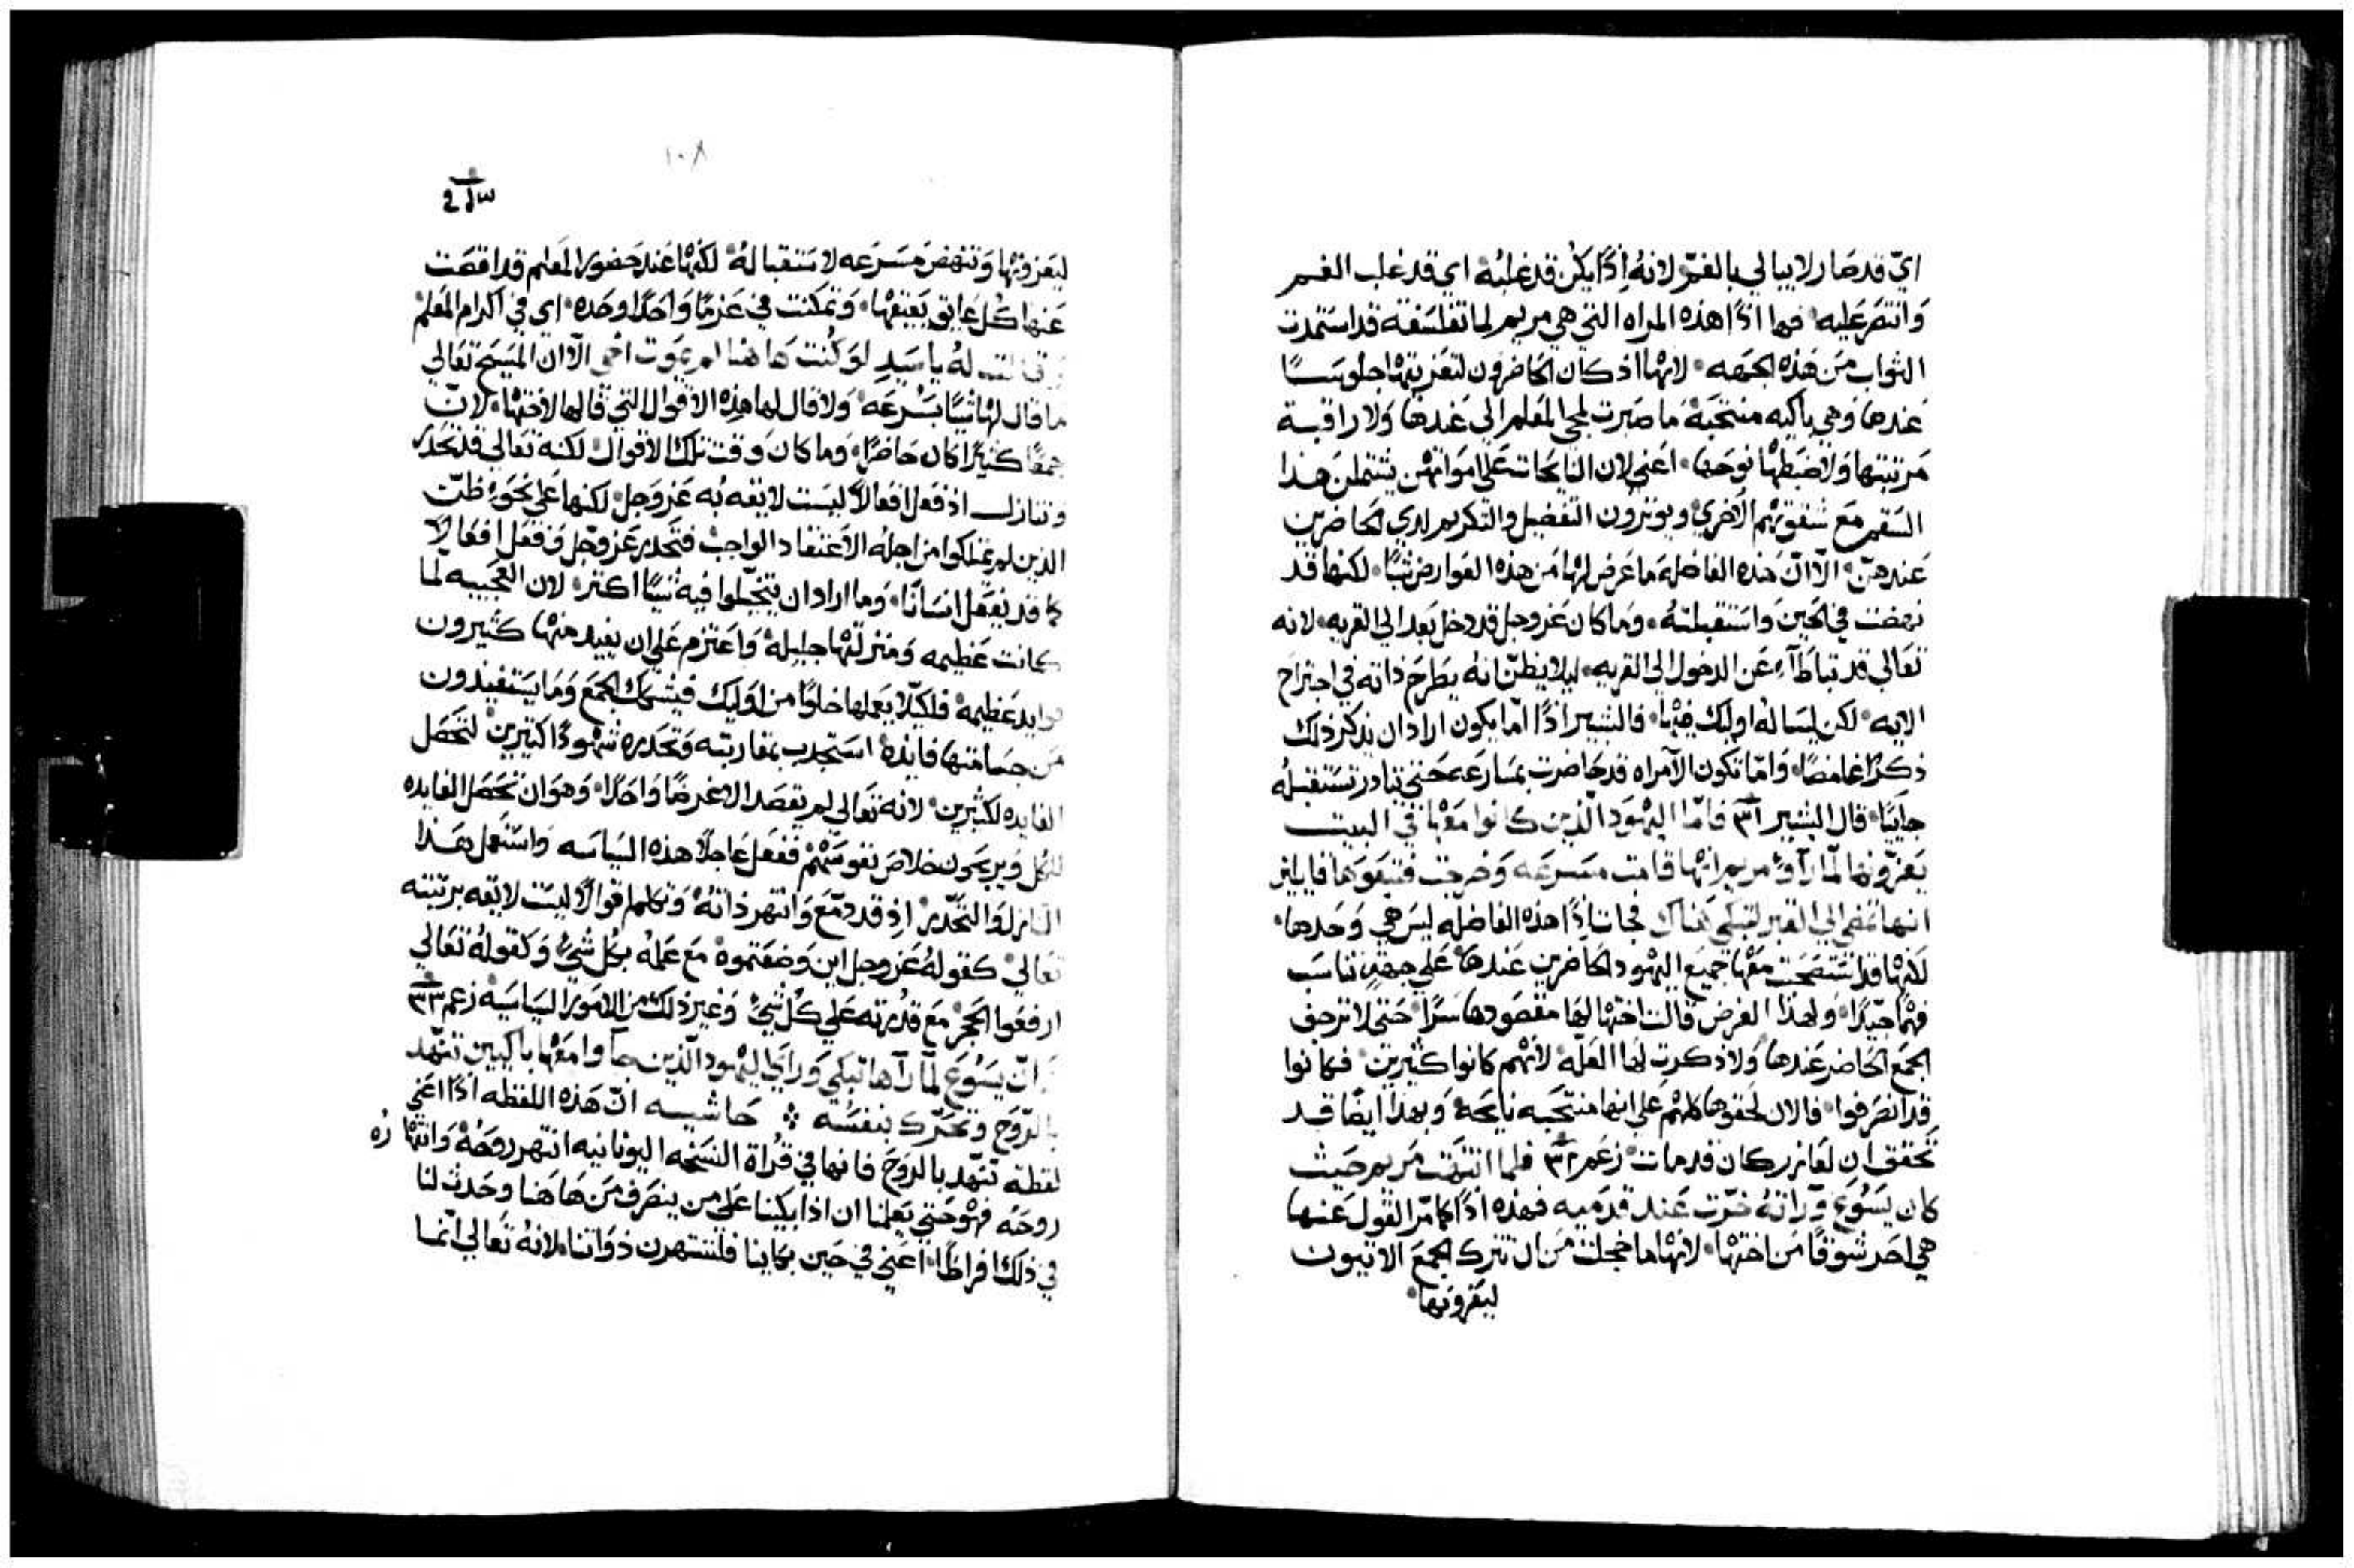 ايّ قد صَار لا يبالي بالغمّ لانهُ اِذًا يكن قد غلبُهْ اي قد غلب الغم
وَانتصَر عَليه فهَا اذًا هذه المراه التي هي مريم لما تفلسَفة قد استمدت
الثواب مَن هَذه الجهَه لانهَا اذ كان الحَاضرون لتعَزيتهَا جلوسًا
عَندهَا وَهي باكيه منتحَبَة مَا صَبرت لمجي المعَلم الي عَندهَا وَلا راقبة
مَرتبتها وَلا ضبَطهَا نوحَهَا اعَني لان النايحَات عَلي امَواتهَن يشتملن هذا
السَقم مَع شقوتهم الاخري ويوثرون التفضيل والتكريم لدي الحَاضرين
عَندهنّ الاّ انّ هَذه الفاضلهَ مَا عَرض لهَا مَن هذه العَوارض شيًا لكنهَا قد
نهَضت في الحَين وَاستقبلتهُ وَمَا كان عَز وجل قد دخل بعَد الي القريه لانه
تعَالي قد تباطَآء عَن الدخول الي القريه ليلا يظنّ انهُ يطَرحَ ذاته في اجتراح
الايه لكن ليسَالهُ اوليك فيهَا فالبشير اذًا امّا يكون اراد ان يذكر ذلك
ذكرًا غامضًا وَامّا تكون الآمراه قد حَاضرت بمسَارعَه حَتي تبادر تستقبلهُ
جاثيًا قال البشير ٣١ فامّا اليهَود الّذين كانوا معَهَا في البيت
يعَزّونهَا لمّا رآوْ مريم انهَا قامت مسَرعَه وَخرجت فتبعَوهَا قايلين
انهَا تمضي الي القبر لتبكي هَناك فجات اِذًا هذه الفاضلَه ليسَ هي وَحَدهَا
لكنهَا قد استصحَبت معَهَا جميَع اليهَود الحَاضرين عَندهَا عَلي جهَة تناسَب
فهمًا جيّدًا وَلهذا الغرض قالت اختهَا لهَا مقصَودهَا سَرًا حَتي لا ترجف
الجمَع الحَاضر عَندهَا وَلا ذكرت لهَا العَلّه لانهَم كانوا كثيرين فكانوا
قد انصَرفوا فالان لحَقوهَا كلهَم عَلي انهَا منتحَبه نايحَة وَبهَذا ايضًا قد
تحَقق ان لعَازر كان قد مات زعَم ٣٢ فلما انتهَت مَريم حَيث
كان يَسُوَع وَرَاتهُ خرّت عَند قدمَيه فهَذه اذًا كما مّر القول عَنهَا
هي احَد شوقًا مَن اختهَا لانهَا ما خجلت مَن ان تترك الجمَع الاتيون
ليعَزونهَا
١٠٨
ليعَزونهَا وَتنهَض مسَرعَه لاستقبالهُ لكنهَا عَند حَضور المعَلم قد اقصَت
عَنهَا كُل عَايق يعَيقهَا وَتمكنت في عَزمًا وَاحَدًا وحَده اي في اكرام المعَلم
وقالت لهُ يا سَيد لوَ كُنت هَا هُنا لم يموَت اخي الاّ ان المَسَيح تعَالي
مَا قال لهَا شيًا بسُرعَه وَلا قال لهَا هذِه الاقوال التي قالهَا لاختهَا لانّ
جمعًا كثيرًا كان حَاضرًا وَما كان وَقت تلك الاقوال لكنه تعَالي قد تحَدّر
وتنازل اذ فعَل افعَالاً ليسَت لايقه بُه عَز وَجل لكنهَا عَلي نحَو ظنّ
الذين لم يمتلكوا مَن اجلهُ الاعَتقاد الواجب فتحَدّر عَز وَجّل وَفعَل افعَالاً
كمَا قد يفعَل انسَانًا وَما اراد ان يتخيّلوا فيه شيًا اكثر لان العَجيبه لمّا
كانت عَظيمه وَمنزلتهَا جليلهْ وَاعتزم عَلي ان يفيد منهَا كثيرون
فوايد عَظيمهْ فلكيّلا يعَملهَا خلوًا من اوَليك فيشكك الجمَع وَمَا يسَتفيدون
مَن جسَامتهَا فايدة استجدب بمقاربته وَتحَدره شهَودًا كثيرين لتحَصَل
الفايده لكثيرين لانه تعَالي لم يقصَد الا غَرضًا وَاحَدًا وَهَوَ ان تحَصَل الفايده
للكُل وَيربحَون خلاصَ نفوسَهَم ففعَل عَاجلاً هذه السَياسَه وَاستعَمل بهَذا
التنازل وَالتحَدّر اِذ قد دمّع وَانتهَر ذاتهُ وَتكلم اقوالاً ليسَت لايقه برتبته
تعَالي كقولهُ عَز وجل اين وَضعَتموهْ مَع عَلمهُ بكُل شيْ وَكقولهُ تعَالي
ارفعَوا الحَجر مَع قدُرته عَلي كُل شيْ وَغير ذلك من الامَور السَياسَية زعم ٣٣
انّ يسَوُعَ لمّا رآهَا تبكي وَرايَ اليهَود الّذين جآوا معَهَا باكيين تنهّد
بالرّوحَ وتحَرّك بنفسَه حَاشيه انّ هَذه اللفظه اذًا اعَني
لفظة تنهّد بالروَحَ فانهَا في قرُاة النسَخه اليونانيه انتهَر روحَهُ وَانتهَاره
روحَه فهَوْ حَتي يعَلمنا ان اذا بكينا عَلي مَن ينصَرف مَن هَا هَنا وحَدث لنا
في ذلك افراطًا اعَني في حَين بكاينا فلننتهرن ذوَاتنا لانهُ تعَالي انّمَا